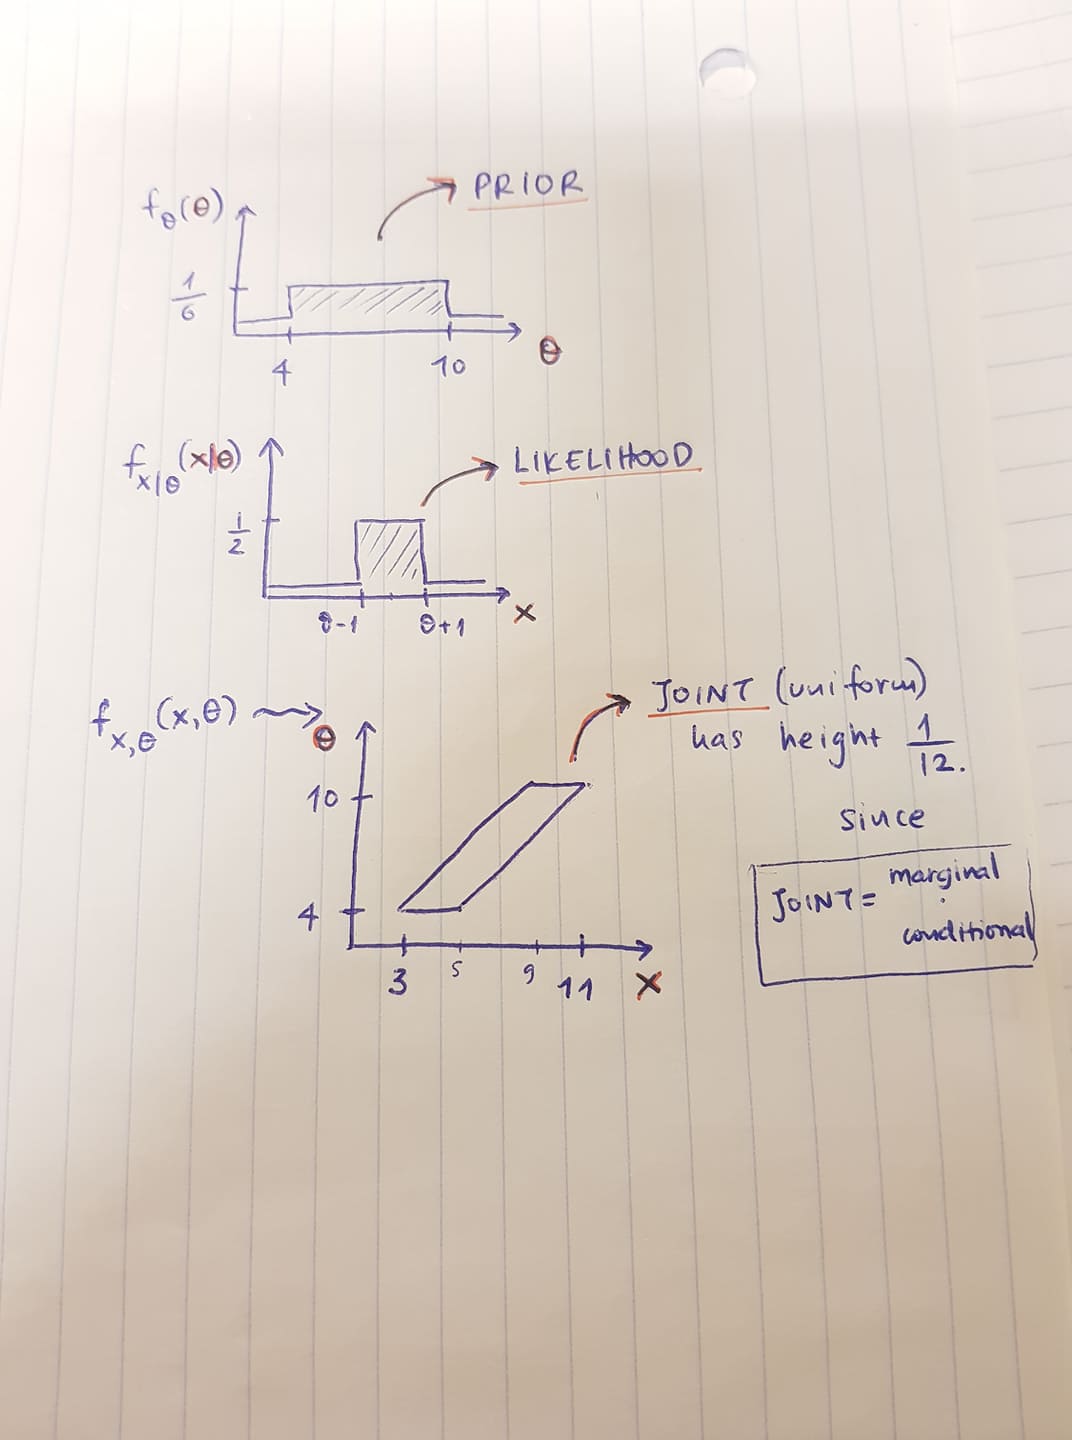 f_θ(θ)
PRIOR
1/6
4 10 θ
f_x|θ (x|θ)
LIKELIHOOD
1/2
θ-1 θ+1 x
f_x,θ (x,θ)
θ
JOINT (uniform)
has height 1/12.
since
JOINT = marginal
·
conditional
10
4
3 5 9 11 x